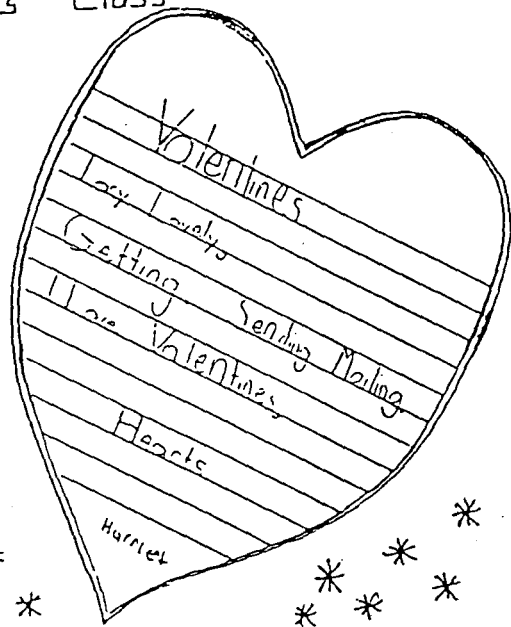 Class
Valentines
Lacy, Lovely,
Getting Sending Mailing
I Love Valentines
Hearts
Harriet